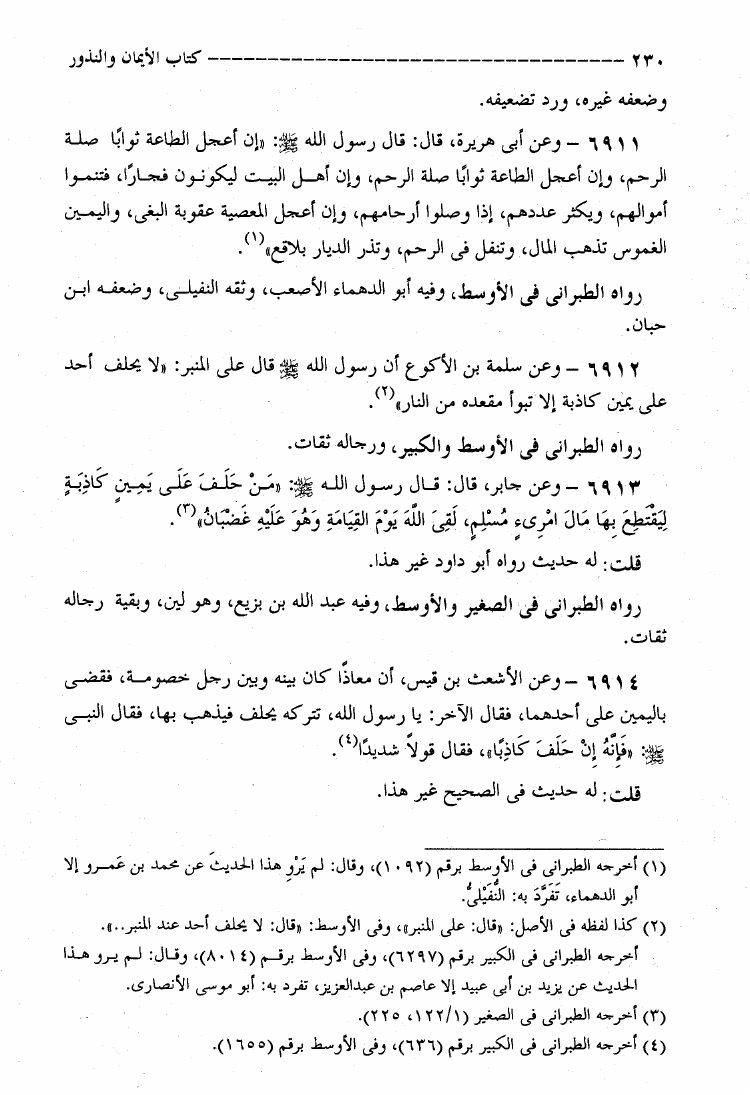 ٢٣٠ ــــــــــــــــــــــــــــــــــــــــــــــــــــــــــــــــــــــ كتاب الأيمان والنذور
وضعفه غيره، ورد تضعيفه.
٦٩١١ – وعن أبى هريرة، قال: قال رسول الله ﷺ: «إن أعجل الطاعة ثوابًا صلة
الرحم، وإن أعجل الطاعة ثوابًا صلة الرحم، وإن أهل البيت ليكونون فجارًا، فتنموا
أموالهم، ويكثر عددهم، إذا وصلوا أرحامهم، وإن أعجل المعصية عقوبة البغى، واليمين
الغموس تذهب المال، وتنفل فى الرحم، وتذر الديار بلاقع»(١).
رواه الطبرانى فى الأوسط، وفيه أبو الدهماء الأصعب، وثقه النفيلى، وضعفه ابن
حبان.
٦٩١٢ – وعن سلمة بن الأكوع أن رسول الله ﷺ قال على المنبر: «لا يحلف أحد
على يمين كاذبة إلا تبوأ مقعده من النار»(٢).
رواه الطبرانى فى الأوسط والكبير، ورجاله ثقات.
٦٩١٣ – وعن جابر، قال: قال رسول الله ﷺ: «مَنْ حَلَفَ عَلَى يَمِينٍ كَاذِبَةٍ
لِيَقْتَطِعَ بِهَا مَالَ امْرِىءٍ مُسْلِمٍ، لَقِىَ اللَّهَ يَوْمَ القِيَامَةِ وَهُوَ عَلَيْهِ غَضْبَانُ»(٣).
قلت: له حديث رواه أبو داود غير هذا.
رواه الطبرانى فى الصغير والأوسط، وفيه عبد الله بن بزيع، وهو لين، وبقية رجاله
ثقات.
٦٩١٤ – وعن الأشعث بن قيس، أن معاذًا كان بينه وبين رجل خصومة، فقضى
باليمين على أحدهما، فقال الآخر: يا رسول الله، تتركه يحلف فيذهب بها، فقال النبى
ﷺ: «فَإِنَّهُ إِنْ حَلَفَ كَاذِبًا»، فقال قولاً شديدًا(٤).
قلت: له حديث فى الصحيح غير هذا.
(١) أخرجه الطبرانى فى الأوسط برقم (١٠٩٢)، وقال: لم يَرْوِ هذا الحديث عن محمد بن عَمرو إلا
أبو الدهماء، تَفَرَّدَ به: النُّفَيْلِىُّ.
(٢) كذا لفظه فى الأصل: «قال: على المنبر»، وفى الأوسط: «قال: لا يحلف أحد عند المنبر..».
أخرجه الطبرانى فى الكبير برقم (٦٢٩٧)، وفى الأوسط برقم (٨٠١٤)، وقال: لم يرو هذا
الحديث عن يزيد بن أبى عبيد إلا عاصم بن عبدالعزيز، تفرد به: أبو موسى الأنصارى.
(٣) أخرجه الطبرانى فى الصغير (١٢٢/١، ٢٢٥).
(٤) أخرجه الطبرانى فى الكبير برقم (٦٣٦)، وفى الأوسط برقم (١٦٥٥).